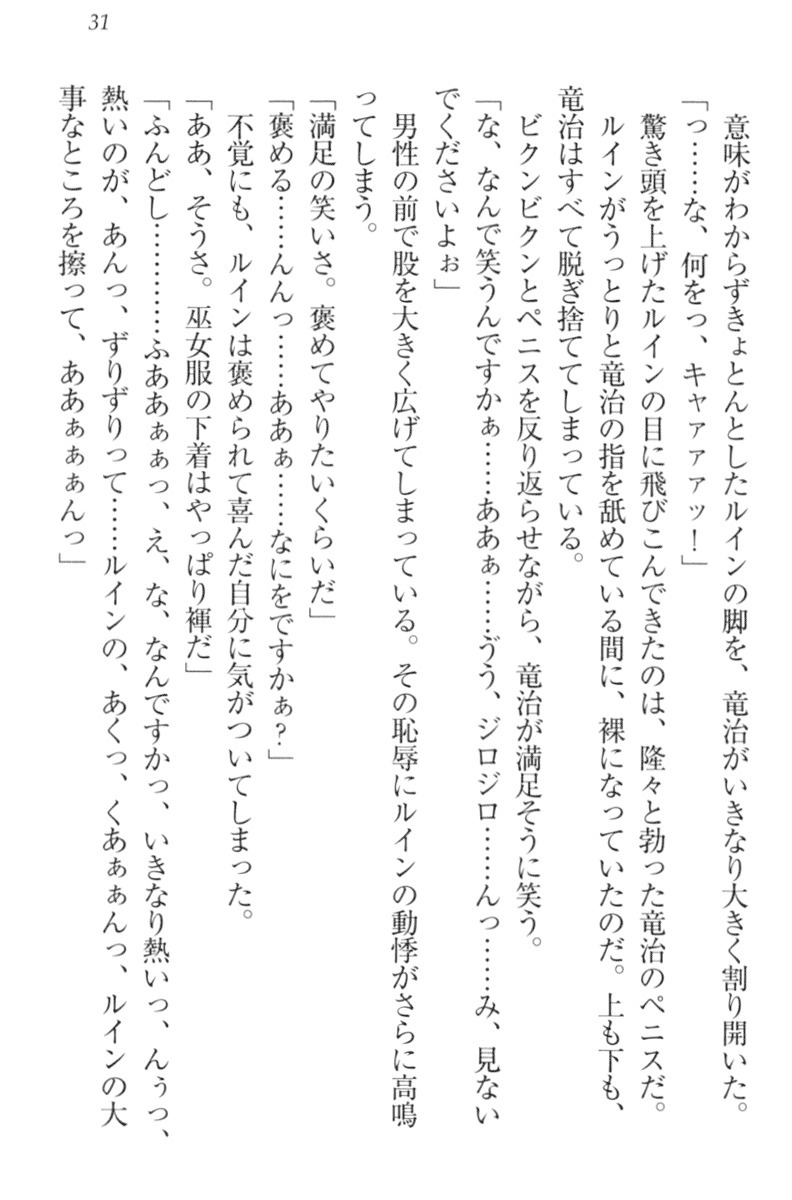 31
　意味がわからずきょとんとしたルインの脚を、竜治がいきなり大きく割り開いた。
「っ……な、何をっ、キャァァァッ！」
　驚き頭を上げたルインの目に飛びこんできたのは、隆々と勃った竜治のペニスだ。
　ルインがうっとりと竜治の指を舐めている間に、裸になっていたのだ。上も下も、
竜治はすべて脱ぎ捨ててしまっている。
　ビクンビクンとペニスを反り返らせながら、竜治が満足そうに笑う。
「な、なんで笑うんですかぁ……ああぁ……ゔう、ジロジロ……んっ……み、見ない
でくださいよぉ」
　男性の前で股を大きく広げてしまっている。その恥辱にルインの動悸がさらに高鳴
ってしまう。
「満足の笑いさ。褒めてやりたいくらいだ」
「褒める……んんっ……ああぁ……なにをですかぁ？」
　不覚にも、ルインは褒められて喜んだ自分に気がついてしまった。
「ああ、そうさ。巫女服の下着はやっぱり褌だ」
「ふんどし…………ふああぁぁっ、え、な、なんですかっ、いきなり熱いっ、んぅっ、
熱いのが、あんっ、ずりずりって……ルインの、あくっ、くあぁぁんっ、ルインの大
事なところを擦って、ああぁぁぁんっ」